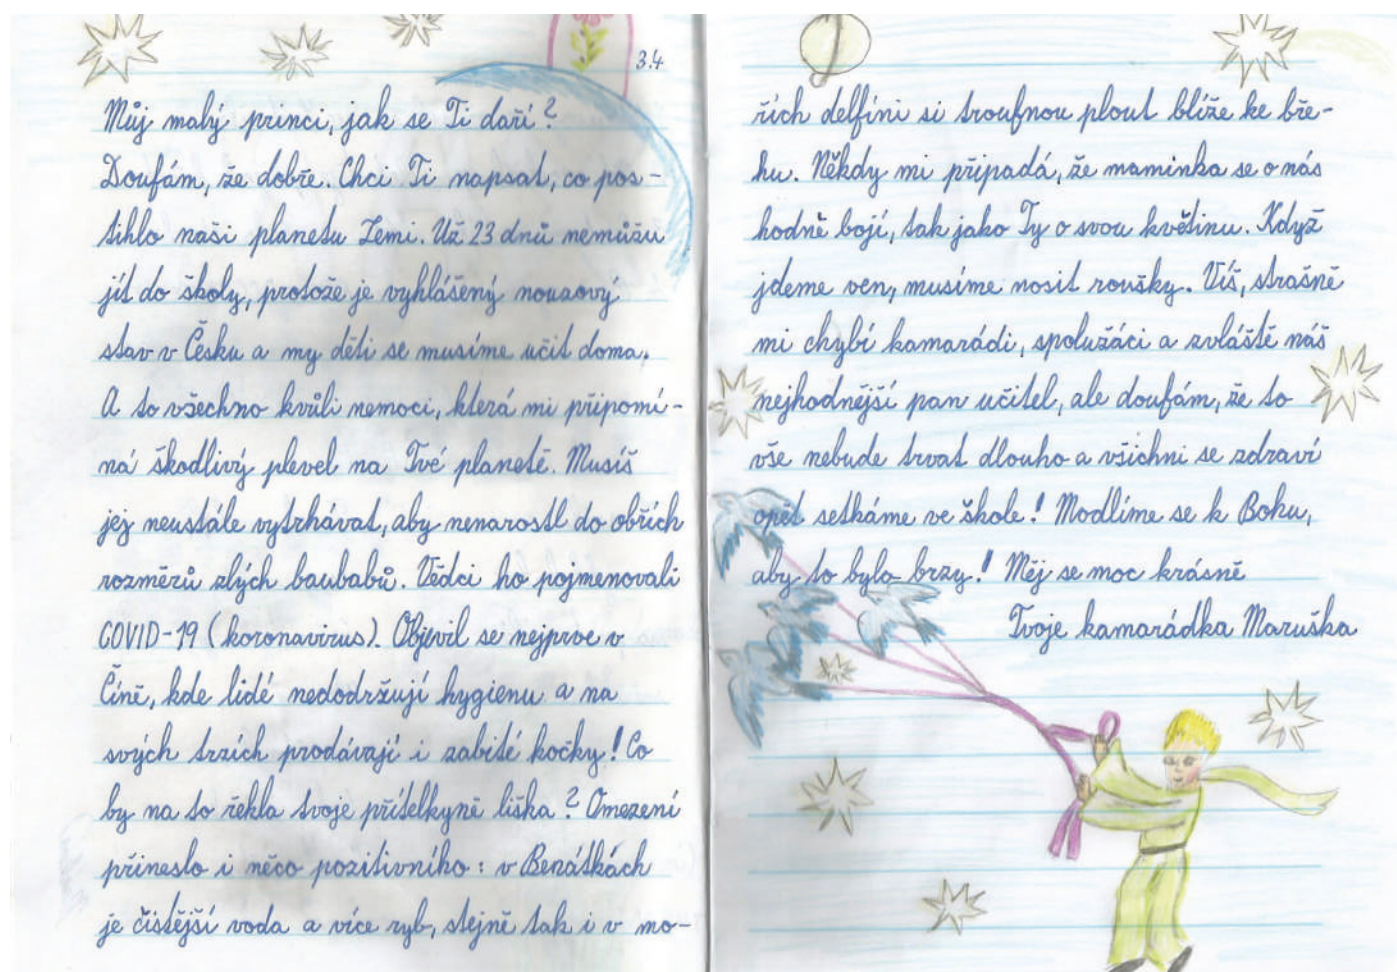 3.4
Můj malý princi, jak se Ti daří?
Doufám, že dobře. Chci Ti napsat, co pos-
tihlo naši planetu Zemi. Už 23 dnů nemůžu
jít do školy, protože je vyhlášený nouzový
stav v Česku a my děti se musíme učit doma.
A to všechno kvůli nemoci, která mi připomí-
ná škodlivý plevel na Tvé planetě. Musíš
jej neustále vytrhávat, aby nenarostl do obřích
rozměrů zlých baobabů. Vědci ho pojmenovali
COVID-19 (koronavirus). Objevil se nejprve v
Číně, kde lidé nedodržují hygienu a na
svých trzích prodávají i zabité kočky! Co
by na to řekla tvoje přítelkyně liška? Omezení
přineslo i něco pozitivního: v Benátkách
je čistější voda a více ryb, stejně tak i v mo-
řích delfíni si troufnou plout blíže ke bře-
hu. Někdy mi připadá, že maminka se o nás
hodně bojí, tak jako Ty o svou květinu. Když
jdeme ven, musíme nosit roušky. Víš, strašně
mi chybí kamarádi, spolužáci a zvláště náš
nejhodnější pan učitel, ale doufám, že to
vše nebude trvat dlouho a všichni se zdraví
opět setkáme ve škole! Modlíme se k Bohu,
aby to bylo brzy! Měj se moc krásně
Tvoje kamarádka Maruška